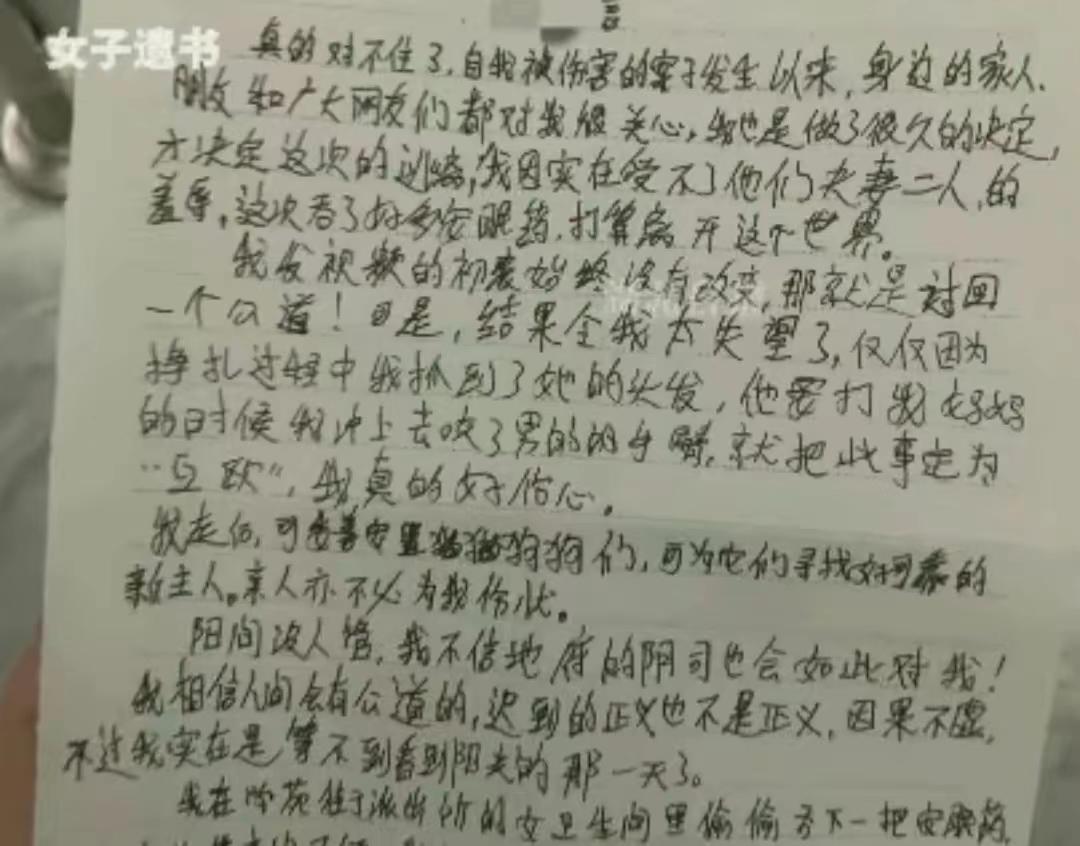 女子遗书
真的对不住了,自我被伤害的案子发生以来,身边的家人、
朋友和广大网友们都对我很关心,我也是做了很久的决定,
才决定这次的,我因实在受不了他们夫妻二人的
羞辱,这次吞了好多安眠药,打算离开这个世界。
我发视频的初衷始终没有改变,那就是讨回
一个公道!但是,结果令我太失望了,仅仅因为
挣扎过程中我抓到了她的头发,他要打我妈妈
的时候我冲上去咬了男的的手臂,就把此事定为
“互欧”,我真的好伤心。
我走后,可妥善安置猫猫狗狗们,可为它们寻找好可靠的
新主人。亲人亦不必为我伤悲。
阳间没人管,我不信地府的阴司也会如此对我!
我相信人间会有公道的,迟到的正义也不是正义,因果不虚,
不过我实在是等不到看到阳光的那一天了。
我在派出所的女卫生间里偷偷吞下一把安眠药,